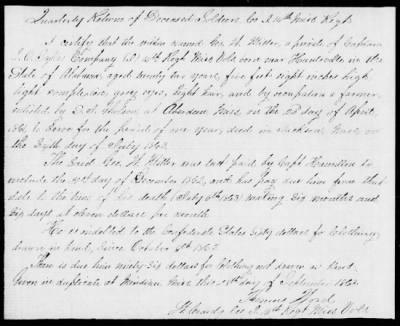 Quarterly Return of Deceased Soldiers Co I 14th Miss Regt
I certify that the within named Geo. W. Miller, a private of Captain
Company (I) 14th Regt Miss Vols born near Huntsville in the
State of Alabama, aged twenty two years, five feet eight inches high
light complexion, grey eyes, light hair, and by occupation a farmer,
enlisted by at Aberdeen Miss, on the 23d day of April,
1861 to serve for the period of one year, died in Jackson Miss, on
the day of July 1863.
The said Geo. W. Miller was last paid by Capt Hamilton to
include the 31st day of December 1862, and has pay due him from that
date to the time of his death (July 6th 1863) making six months and
six days at eleven dollars per month.
He is indebted to the Confederate States sixty dollars for Clothing
drawn in kind, since October 8th 1862.
There is due him ninety six dollars for Clothing not drawn in kind.
Given in duplicate at Meridian Miss this day of September 1863.
Comdg Co I 14th Regt Miss Vols